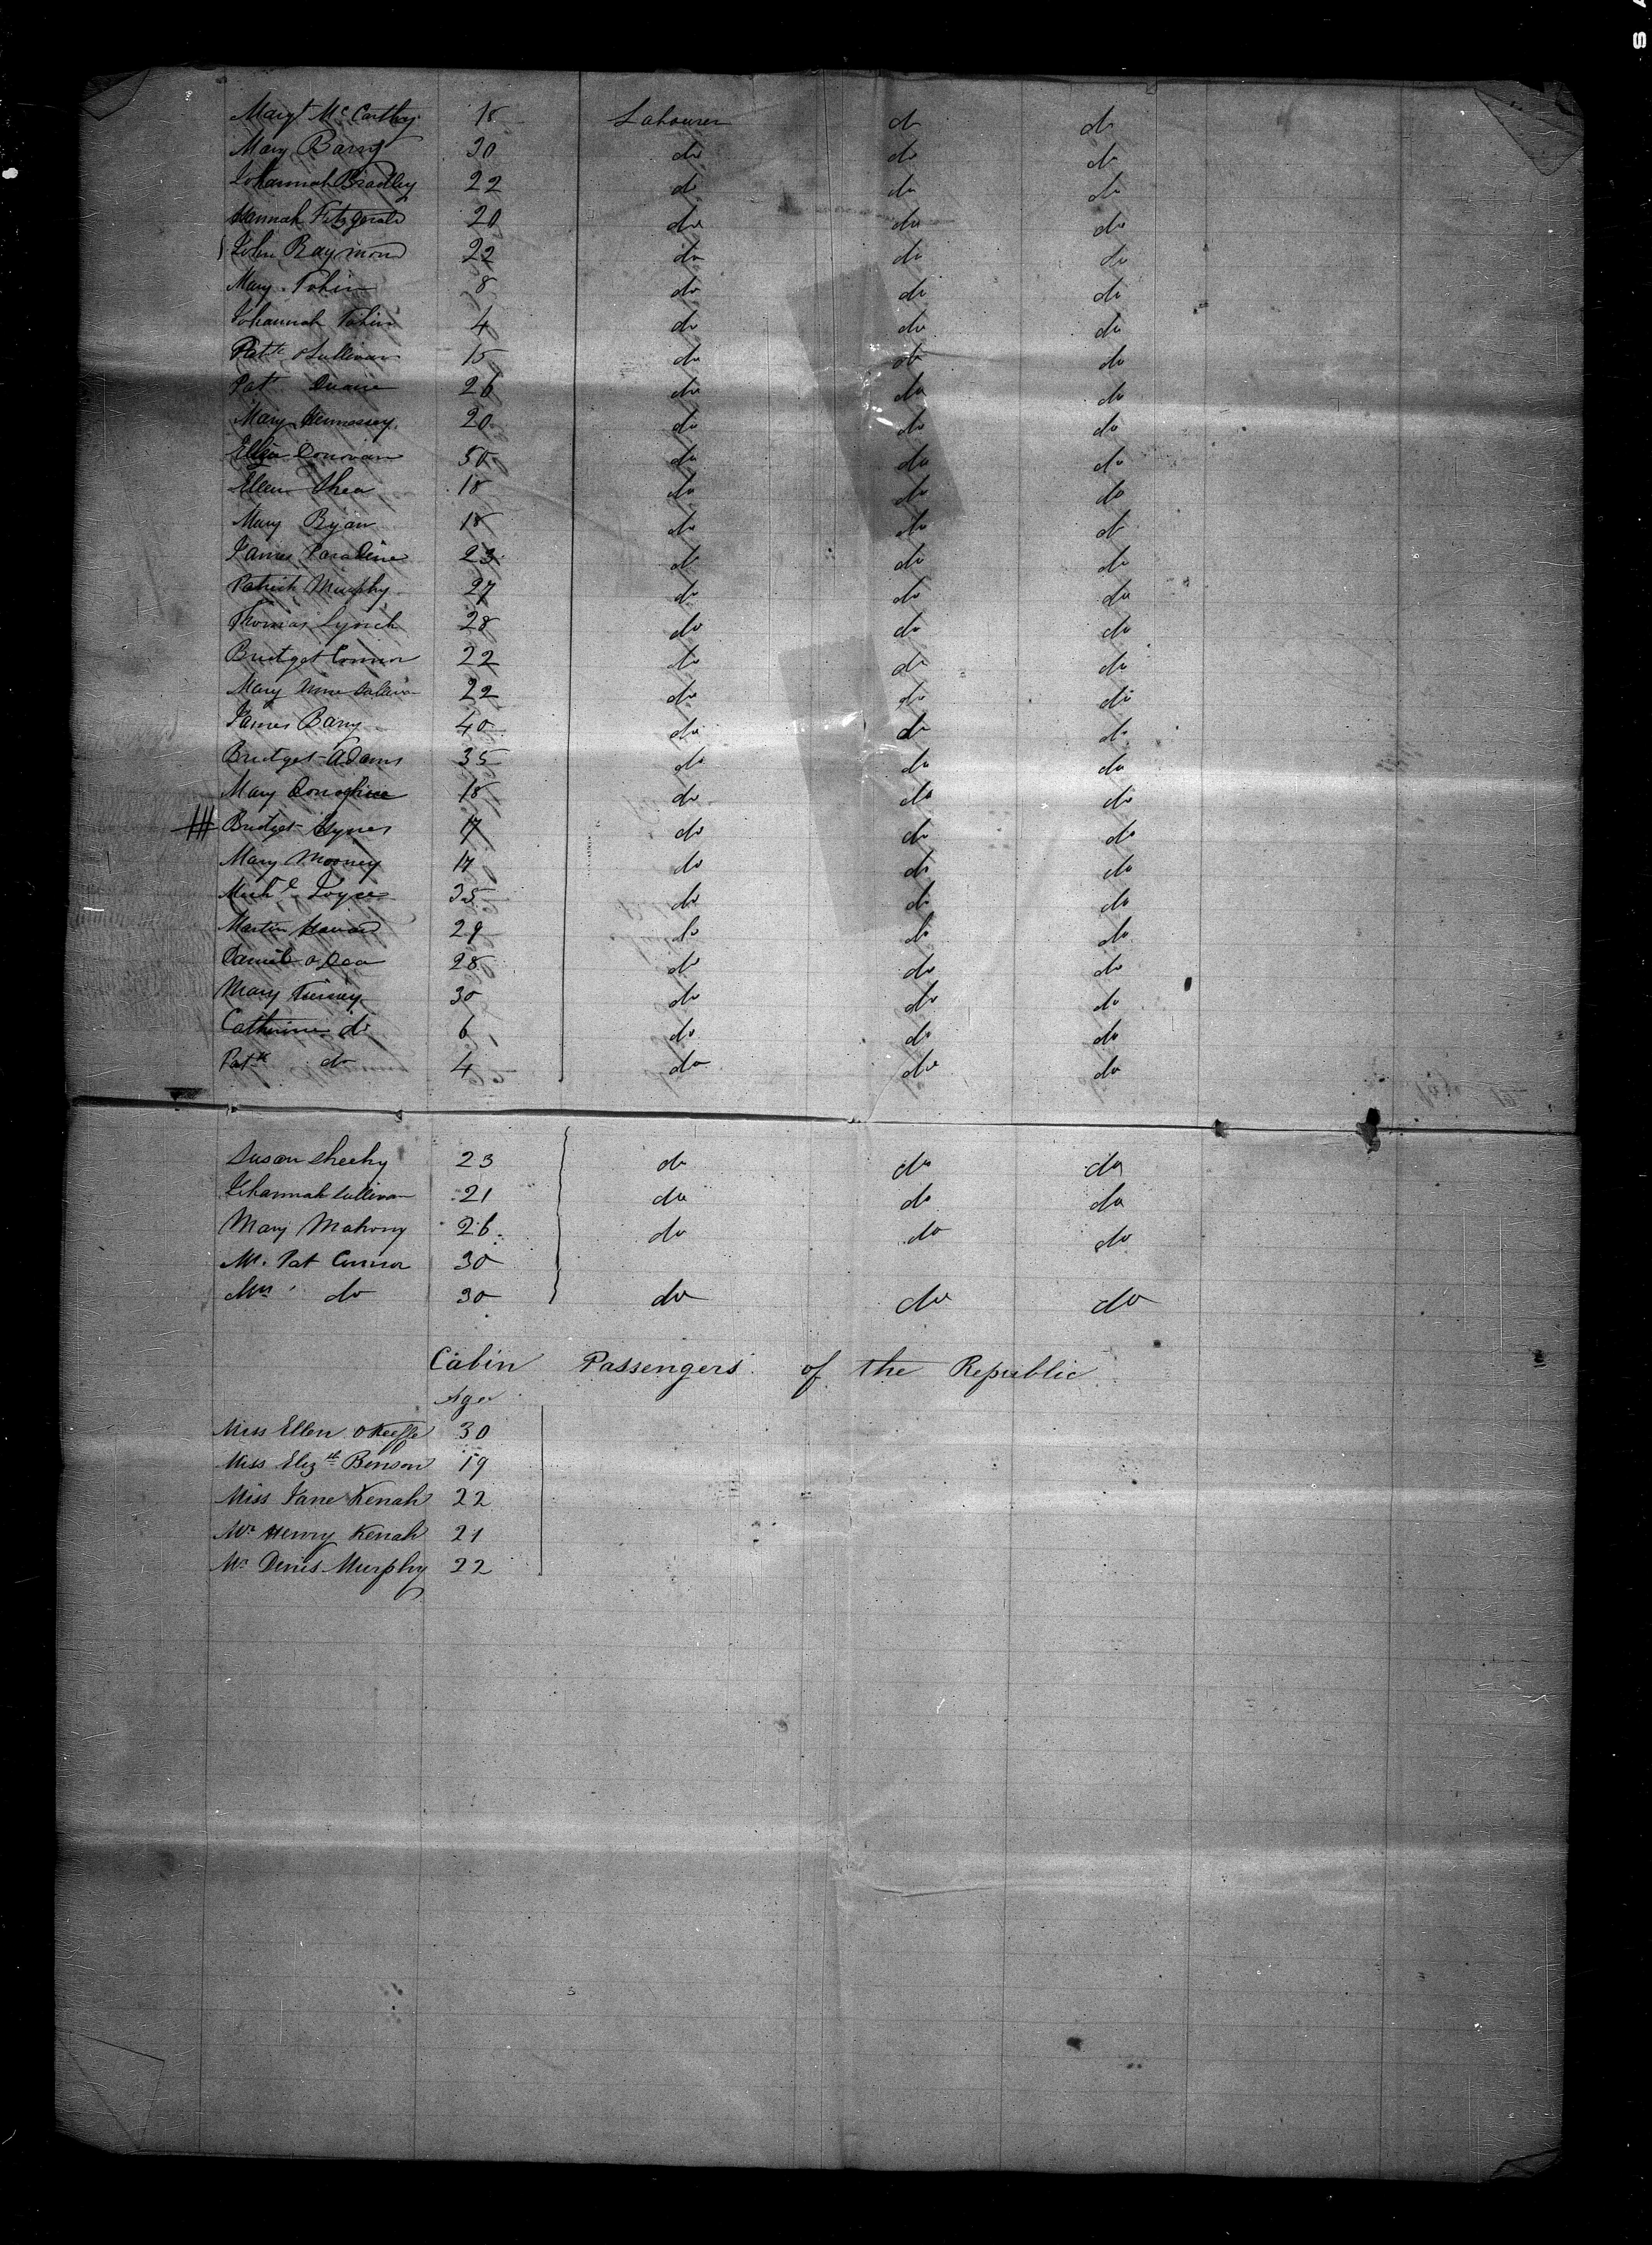 Margt McCarthy 18 Labourer do do
Mary Barry 30 do do do
Johannah Bradley 22 do do do
Hannah Fitzgerald 20 do do do
John Raymond 22 do do do
Mary Tobin 8 do do do
Johannah Tobin 4 do do do
Patk oSullivan 15 do do do
Pat Duane 26 do do do
Mary Hennessy 20 do do do
Eliza Donovan 50 do do do
Ellen Shea 18 do do do
Mary Ryan 18 do do do
James 23 do do do
Patrick Murphy 27 do do do
Thomas Lynch 28 do do do
Bridget Connor 22 do do do
Mary Anne Sullivan 22 do do do
James Barry 40 do do do
Bridget Adams 35 do do do
Mary Donoghue 18 do do do
Bridget Hynes 17 do do do
Mary Mooney 17 do do do
Michl Joyce 35 do do do
Martin 29 do do do
Daniel o Dea 28 do do do
Mary Tierney 30 do do do
Catherine do 6 do do do
Patk do 4 do do do
Susan Sheehy 23 do do do
Johannah Sullivan 21 do do do
Mary Mahony 26 do do do
Mr. Pat Connor 30
Mrs do 30 do do do
Cabin Passengers of the Republic
Age
Miss Ellen oKeeffe 30
Miss Elizth Benson 19
Miss Jane Kenah 22
Mr Henry Kenah 21
Mr Denis Murphy 22